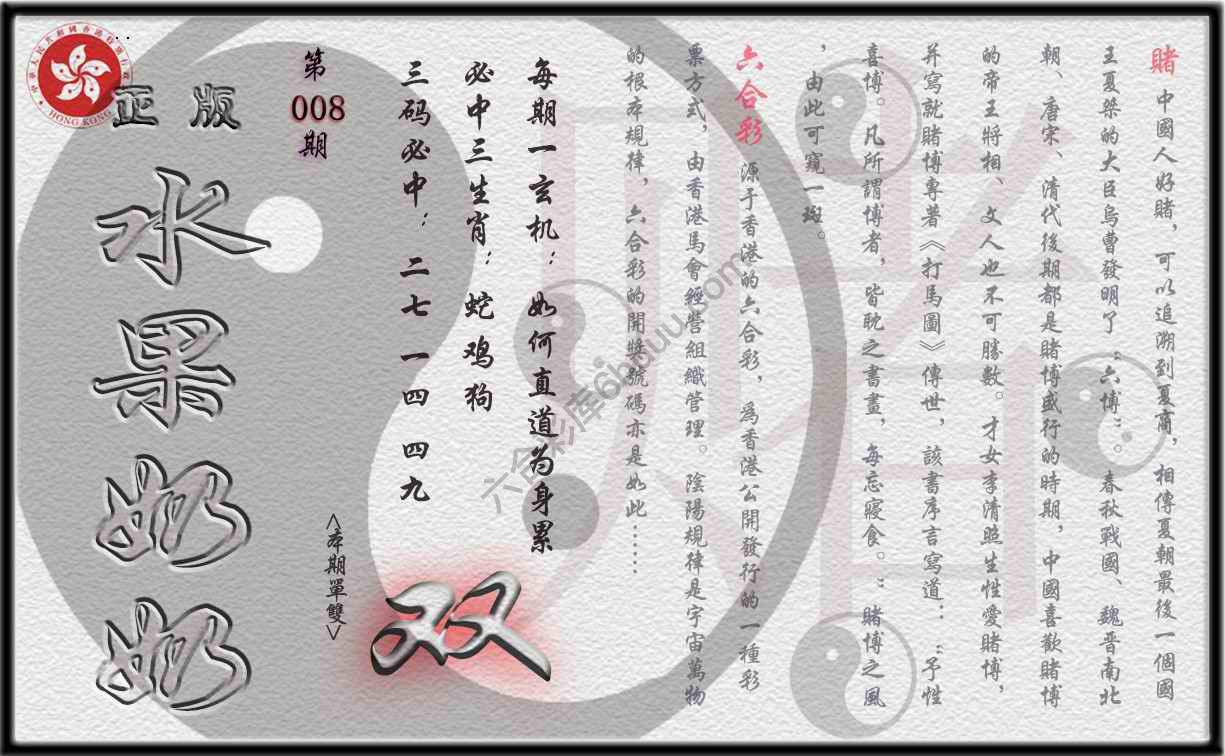 賭 中國人好賭，可以追溯到夏商，相傳夏朝最後一個國
王夏桀的大臣烏曹發明了“六博”。春秋戰國、魏晋南北
朝、唐宋、清代後期都是賭博盛行的時期，中國喜歡賭博
的帝王將相、文人也不可勝數。才女李清照生性愛賭博，
并寫就賭博專著《打馬圖》傳世，該書序言寫道：：“予性
喜博。凡所謂博者，皆耽之書畫，每忘寢食。”賭博之風
，由此可窺一斑。
六合彩 源于香港的六合彩，爲香港公開發行的一種彩
票方式，由香港馬會經營組織管理。陰陽規律是宇宙萬物
的根本規律，六合彩的開獎號碼亦是如此……
每期一玄机：如何直道为身累
必中三生肖：蛇鸡狗
三码必中：二七 一四 四九
双
第
008
期
<本期單雙>
正版
水果奶奶
HONG KONG
六合彩库6hduu.com
賭